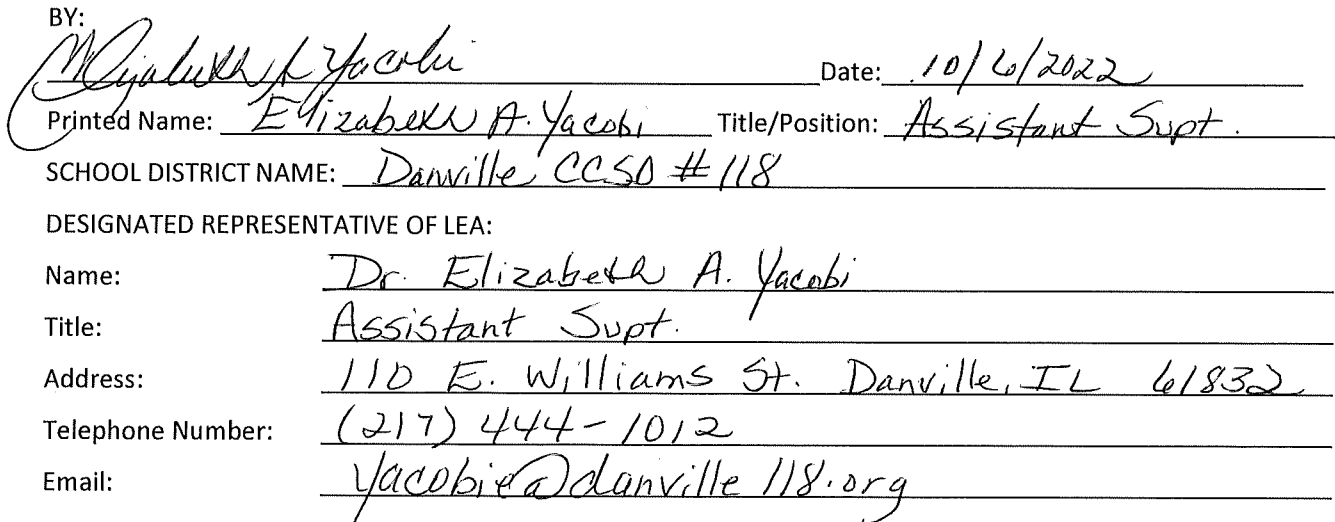 BY:
Elizabeth A Yacobi Date: 10/6/2022
Printed Name: Elizabeth A. Yacobi Title/Position: Assistant Supt.
SCHOOL DISTRICT NAME: Danville CCSD #118
DESIGNATED REPRESENTATIVE OF LEA:
Name: Dr. Elizabeth A. Yacobi
Title: Assistant Supt.
Address: 110 E. Williams St. Danville, IL 61832
Telephone Number: (217) 444-1012
Email: yacobie@danville118.org